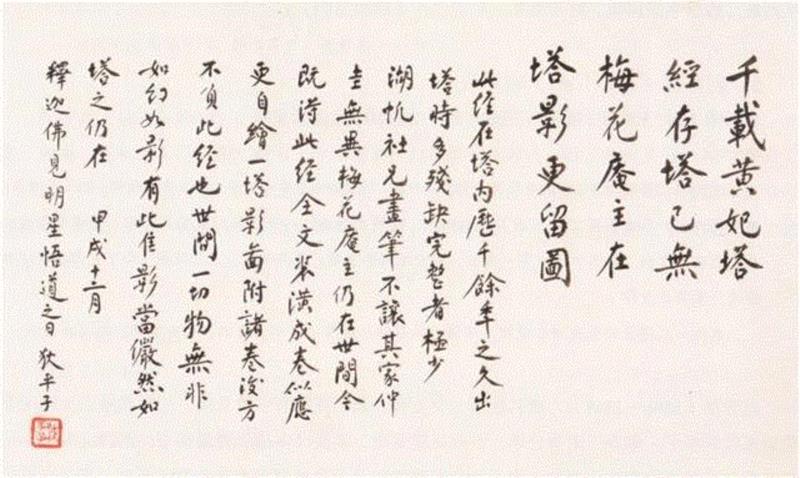 千載黃妃塔
經存塔已無
梅花庵主在
塔影更留圖
此經在塔內歷千餘年之久出
塔時多殘缺完整者極少
湖帆社兄畫筆不讓其家仲
圭無異梅花庵主仍在世間今
既得此經全文裝潢成卷似應
更自繪一塔影圖附諸卷後方
不負此經也世間一切物無非
如幻如影有此佳影當儼然如
塔之仍在 甲戌十二月
釋迦佛見明星悟道之日 狄平子